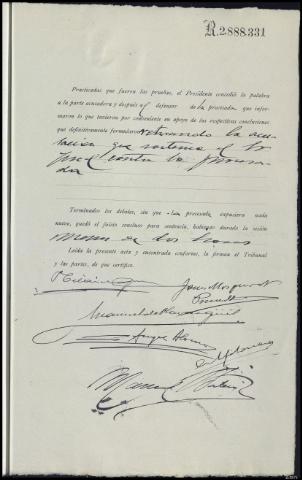 R.2.888.331
Practicadas que fueron las pruebas, el Presidente concedió la palabra
a la parte acusadora y después al defensor de la procesada, que infor-
maron lo que tuvieron por conveniente en apoyo de las respectivas conclusiones
que definitivamente formularon retirando la acu-
sación que sostenía el Sr
Fiscal contra la procesa-
da
Terminados los debates, sin que la procesada expusiera nada
nuevo, quedó el juicio concluso para sentencia, habiendo durado la sesión
menos de dos horas
Leída la presente acta y encontrada conforme, la firma el Tribunal
y las partes, de que certifico.